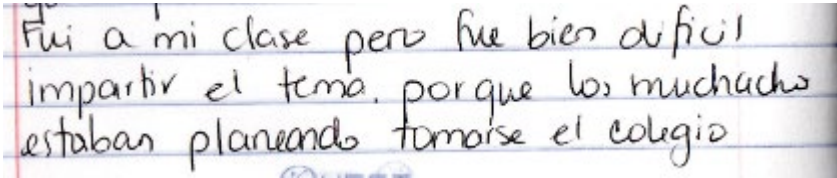 Fui a mi clase pero fue bien dificil
impartir el tema. porque los muchachos
estaban planeando tomarse el colegio